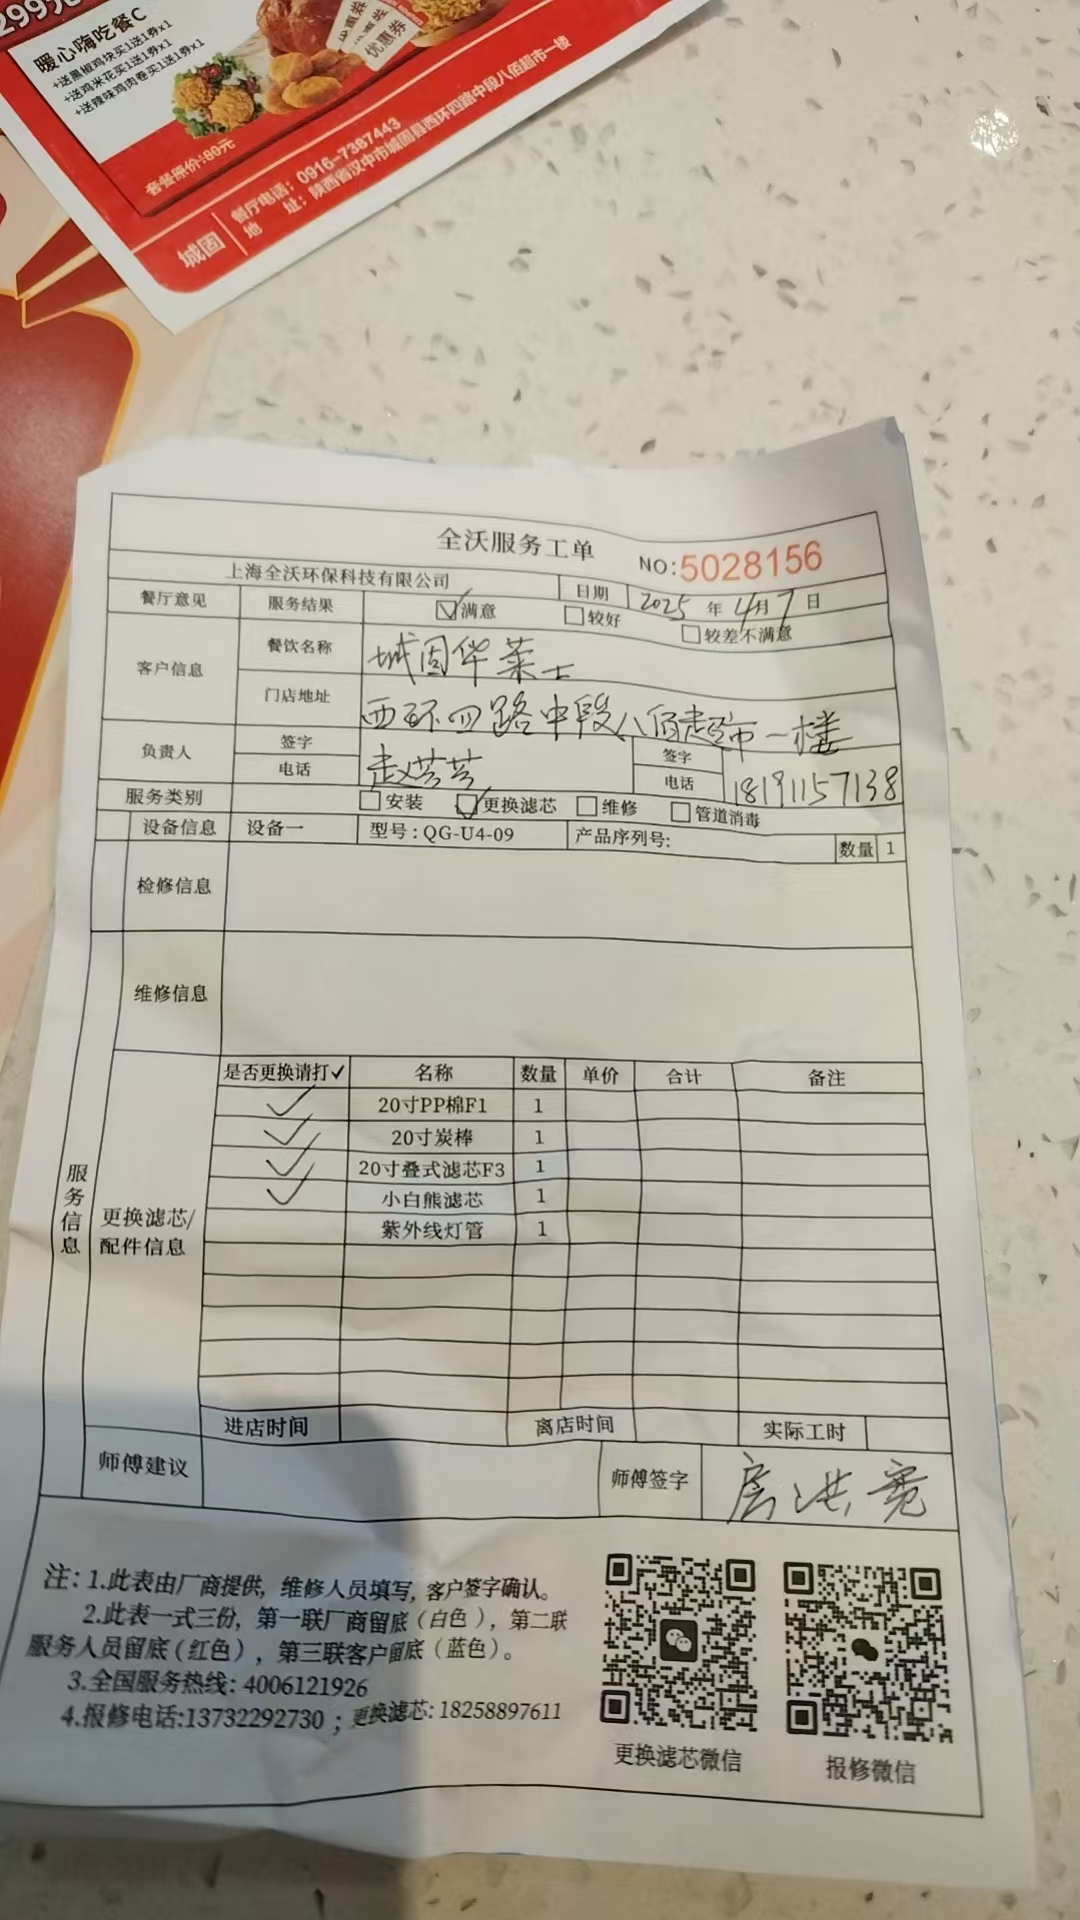 299元
暖心嗨吃餐C
+送黑椒鸡块买1送1券x1
+送鸡米花买1送1券x1
+送辣味鸡肉卷买1送1券x1
优惠券
套餐原价:80元
城固
餐厅电话：0916-7387443
地 址：陕西省汉中市城固县西环四路中段八佰超市一楼
全沃服务工单 NO:5028156
上海全沃环保科技有限公司 日期 2025 年 4月 7 日
餐厅意见 服务结果 满意 较好 较差不满意
客户信息 餐饮名称 城固华莱士
门店地址 西环四路中段八佰超市一楼
负责人 签字 赵芸芸 签字
电话 电话 18191157138
服务类别 安装 更换滤芯 维修 管道消毒
设备信息 设备一 型号：QG-U4-09 产品序列号: 数量 1
检修信息
维修信息
服务信息
更换滤芯/
配件信息
是否更换请打✓ 名称 数量 单价 合计 备注
✓ 20寸PP棉F1 1
✓ 20寸炭棒 1
✓ 20寸叠式滤芯F3 1
✓ 小白熊滤芯 1
紫外线灯管 1
进店时间 离店时间 实际工时
师傅建议 师傅签字 房洪宽
注：1.此表由厂商提供，维修人员填写，客户签字确认。
2.此表一式三份，第一联厂商留底（白色），第二联
服务人员留底（红色），第三联客户留底（蓝色）。
3.全国服务热线: 4006121926
4.报修电话:13732292730 ；更换滤芯: 18258897611
更换滤芯微信 报修微信